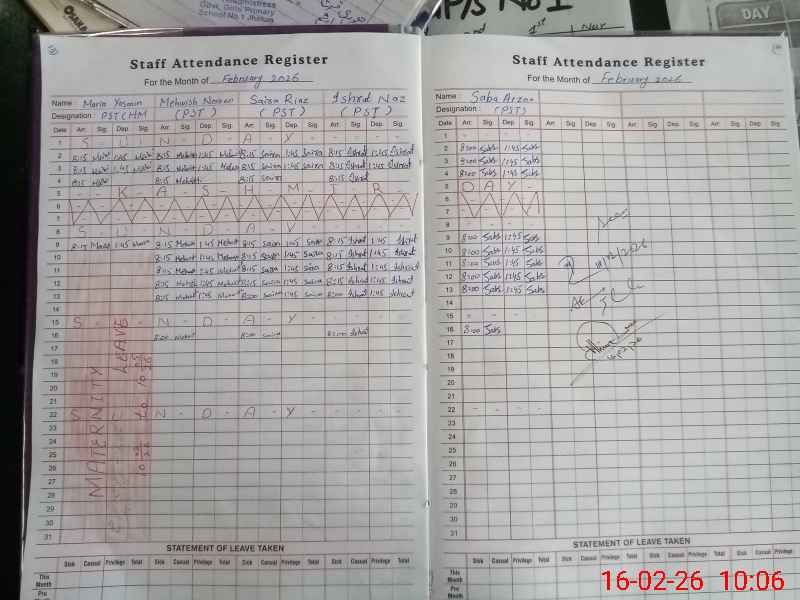 Govt. Girls Primary
School No 1 Jhatua
P/S No 1
DAY
Staff Attendance Register
For the Month of February 2026
Name : Maria Yasmin Mehwish Nawaz Saira Riaz Ishrat Naz
Designation : PST(HM (PST) (PST) (PST)
Date Arr. Sig. Dep. Sig. Arr. Sig. Dep. Sig. Arr. Sig. Dep. Sig. Arr. Sig. Dep. Sig.
1 S - U - N - D - A - Y - - - - -
2 8:15 1:45 8:15 Mehwish 1:45 Mehwish 8:15 Saira 1:45 Saira 8:15 Ishrat 1:45 Ishrat
3 8:15 1:45 8:15 Mehwish 1:45 Mehwish 8:15 Saira 1:45 Saira 8:15 Ishrat 1:45 Ishrat
4 8:15 8:15 Mehwish 8:15 Saira 8:15 Ishrat
5 - - K - A - S - H - M - I - R -
6
7
8 S - U - N - D - A - Y - - - - -
9 8:15 1:45 8:15 Mehwish 1:45 Mehwish 8:15 Saira 1:45 Saira 8:15 Ishrat 1:45 Ishrat
10 8:15 Mehwish 1:45 Mehwish 8:15 Saira 1:45 Saira 8:15 Ishrat 1:45 Ishrat
11 8:15 Mehwish 1:45 Mehwish 8:15 Saira 1:45 Saira 8:15 Ishrat 1:45 Ishrat
12 8:15 Mehwish 1:45 Mehwish 8:15 Saira 1:45 Saira 8:15 Ishrat 1:45 Ishrat
13 8:15 Mehwish 1:45 Mehwish 8:00 Saira 1:45 Saira 8:00 Ishrat 1:45 Ishrat
14
15 S - U - N - D - A - Y - - - - -
16 8:00 Mehwish 8:00 Saira 8:00 Ishrat
17
18
19
20
21
22 S - U - N - D - A - Y - - - - -
23
24
25
26
27
28
29
30
31
MATERNITY
LEAVE
STATEMENT OF LEAVE TAKEN
Sick Casual Privilege Total Sick Casual Privilege Total Sick Casual Privilege Total Sick Casual Privilege Total
This Month
Pre Month
Staff Attendance Register
For the Month of February 2026
Name : Saba Arzoo
Designation : (PST)
Date Arr. Sig. Dep. Sig. Arr. Sig. Dep. Sig. Arr. Sig. Dep. Sig. Arr. Sig. Dep. Sig.
1 - - - -
2 8:00 Saba 1:45 Saba
3 8:00 Saba 1:45 Saba
4 8:00 Saba 1:45 Saba
5 D A Y -
6
7
8 - - - -
9 8:00 Saba 1:45 Saba
10 8:00 Saba 1:45 Saba
11 8:00 Saba 1:45 Saba
12 8:00 Saba 1:45 Saba
13 8:00 Saba 1:45 Saba
14
15 - - - -
16 8:00 Saba
17
18
19
20
21
22 - - - -
23
24
25
26
27
28
29
30
31
STATEMENT OF LEAVE TAKEN
Sick Casual Privilege Total Sick Casual Privilege Total Sick Casual Privilege Total Sick Casual Privilege Total
This Month
Pre Month
16-02-26 10:06